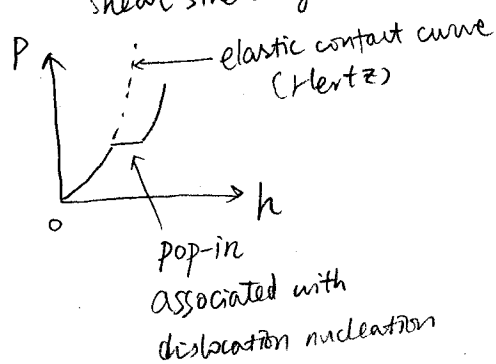 shear strength
P
elastic contact curve
(Hertz)
h
0
pop-in
associated with
dislocation nucleation